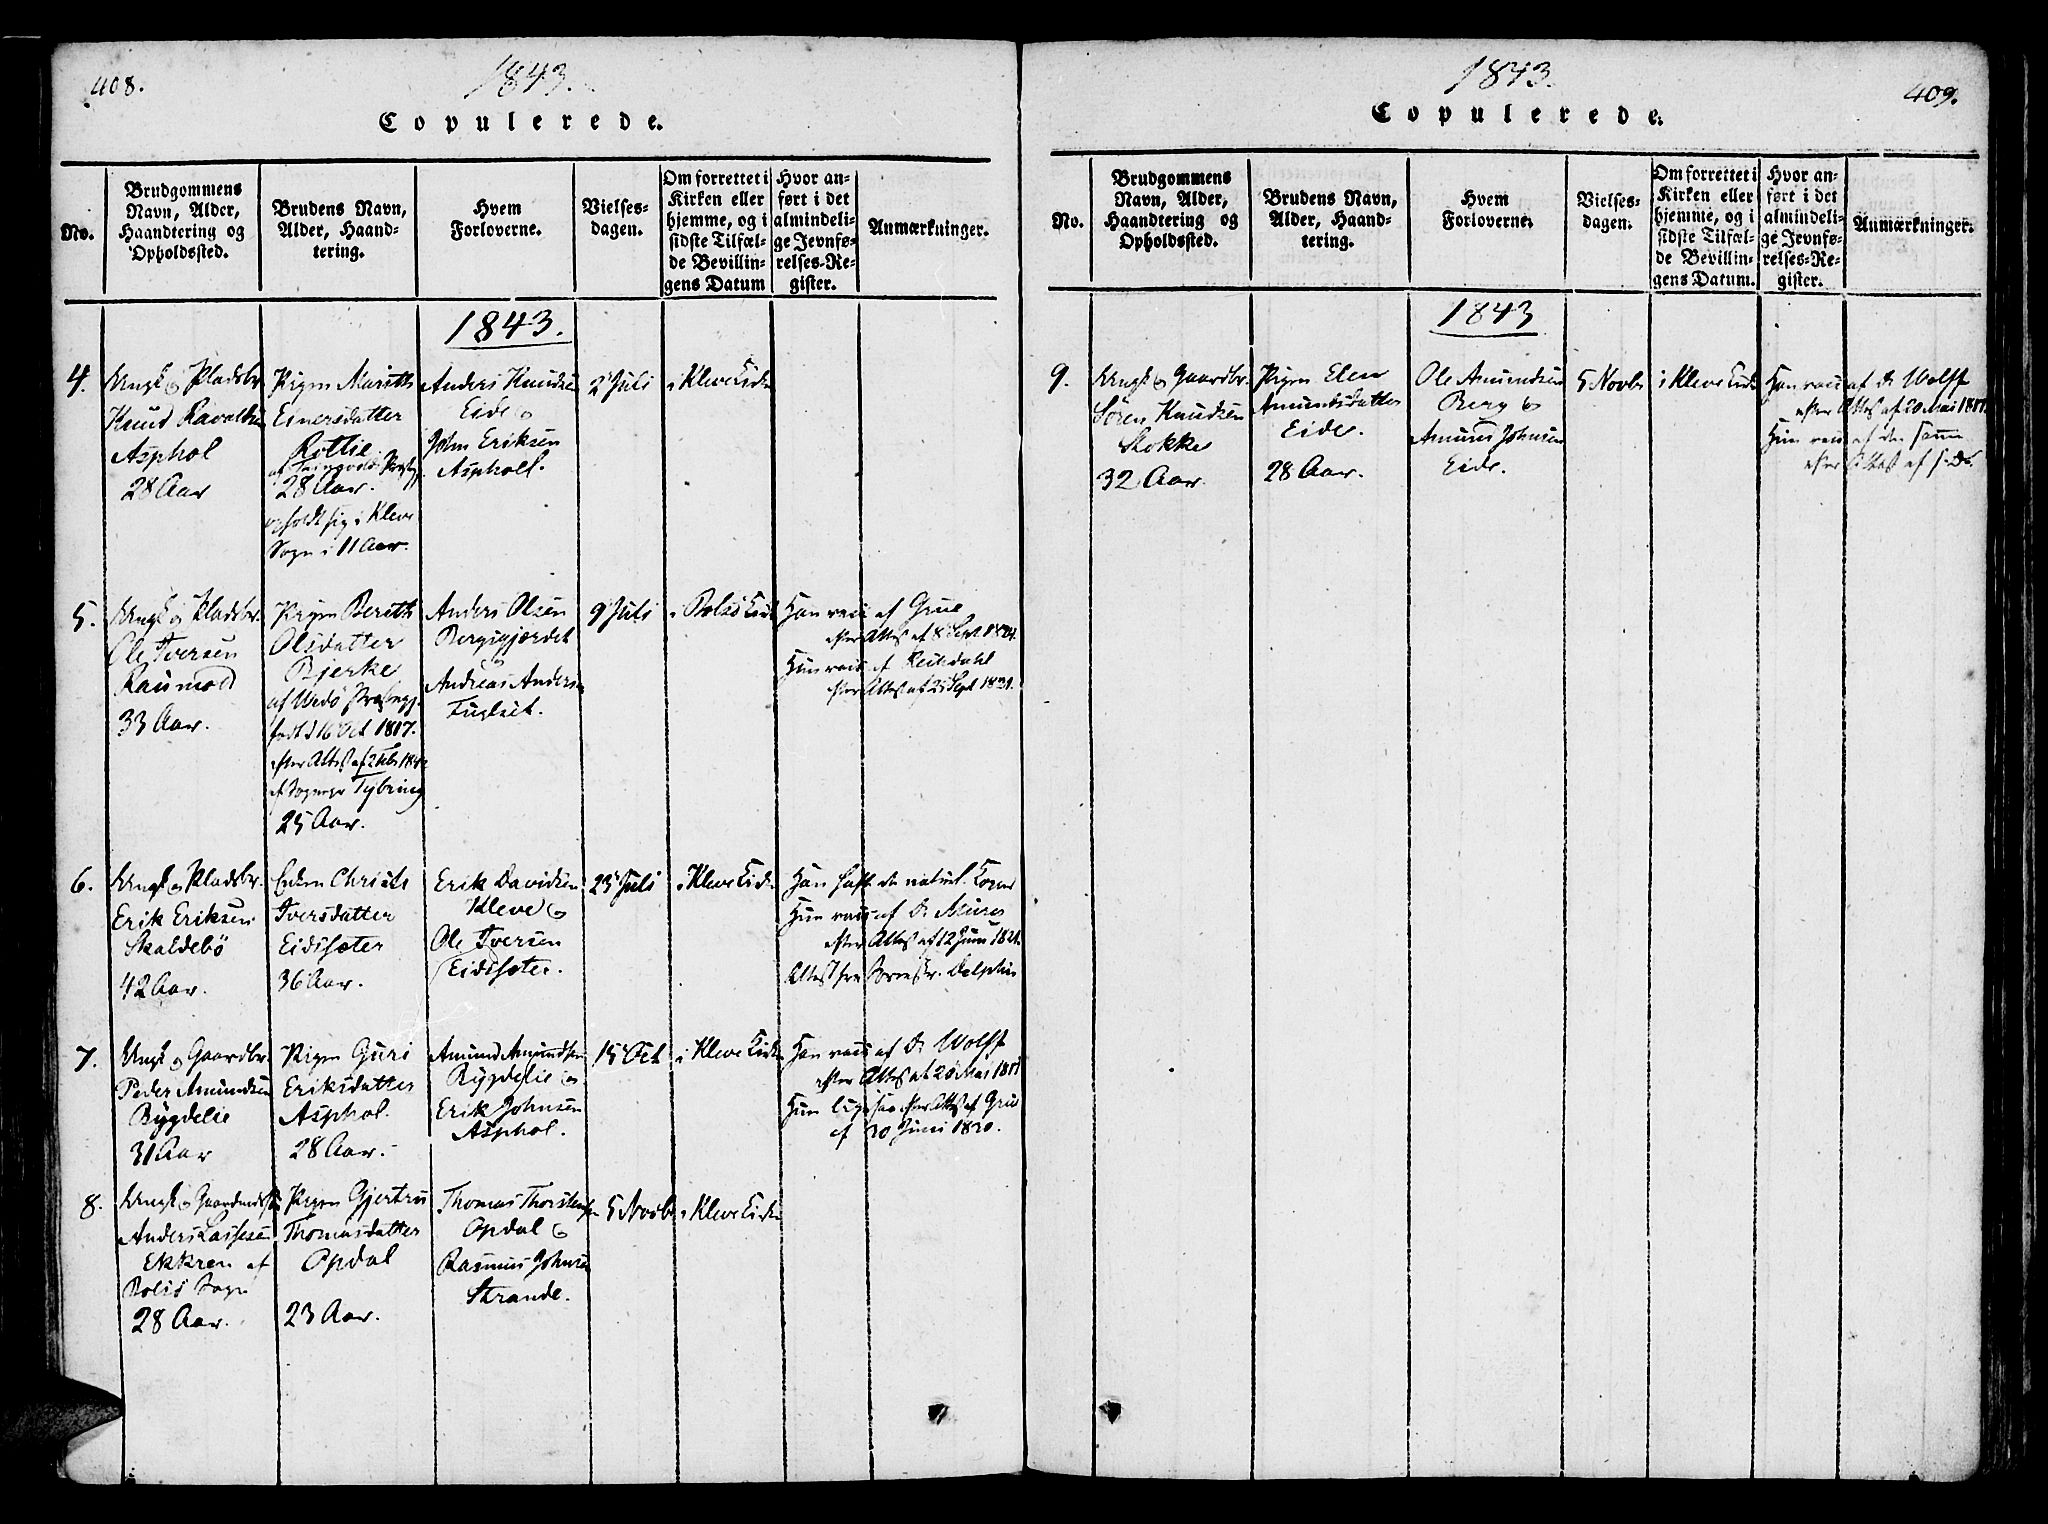 408.
1843.
Copulerede.
No.
Brudgommens Navn, Alder, Haandtering og Opholdssted.
Brudens Navn, Alder, Haandtering.
Hvem Forloverne.
Vielsesdagen.
Om forrettet i Kirken eller hjemme, og i sidste Tilfælde Bevillingens Datum
Hvor anført i det almindelige Jevnførelses-Register.
Anmærkninger.
1843.
4.
Ungk og Pladsbr.
Knud
Asphol
28 Aar
Pigen Marith
Einersdatter
Rottie
28 Aar.
opholdt sig i Kleve
Sogn i 11 Aar.
Anders Knudsen
Eide og
John Eriksen
Asphol.
2 Juli
i Kleve Kirke
5.
Ungk og Pladsbr.
Ole Iversen
33 Aar.
Pigen Berith
Olsdatter
Bjerke
af Wedø Præstegj.
født d 16 Oct 1817.
Tybring
25 Aar.
Anders Olsen
Bergsgjærdet
Andreas Andersen
Fuglset.
9 Juli
i Bolsø Kirk
Han vacc af Grue
efter Attest af 8 Sept
Hun vacc af
efter Attest af
6.
Ungk og Pladsbr.
Erik Eriksen
Skaldebø
42 Aar.
Enken
Iversdatter
Eidssæter
36 Aar.
Erik Davidsen
Kleve og
Ole Iversen
Eidssæter.
23 Juli
i Kleve Kirke
Han haft de naturl. Kopper
Hun vacc af
efter Attest af 12 Juni
Attest fra
7.
Ungk og Gaardbr.
Peder Amundsen
Bygdelie
31 Aar
Pigen Guri
Eriksdatter
Asphol.
28 Aar.
Amund Amundsen
Bygdelie og
Erik Johnsen
Asphol.
15 Oct
i Kleve Kirke
Han vacc af Dr Wolff
efter Attest af 20 Mai
Hun ligesaa efter Attest af Grue
af 20 Juni 1820.
8.
Ungk og
Anders Lassesen
Ekkren af
Bolsø Sogn
28 Aar.
Pigen Gjertru
Thomasdatter
Opdal
23 Aar.
Thomas Thorstensen
Opdal og
Rasmus Johnsen
Strande.
5 Novb
i Kleve Kirke
1843.
409.
Copulerede.
No.
Brudgommens Navn, Alder, Haandtering og Opholdssted.
Brudens Navn, Alder, Haandtering.
Hvem Forloverne.
Vielsesdagen.
Om forrettet i Kirken eller hjemme, og i sidste Tilfælde Bevillingens Datum.
Hvor anført i det almindelige Jevnførelses-Register.
Anmærkninger.
1843
9.
Ungk og Gaardbr.
Søren Knudsen
Stokke
32 Aar.
Pigen Elen
Amundsdatter
Eide.
28 Aar.
Ole Amundsen
Berg og
Amund Johnsen
Eide.
5 Novb
i Kleve Kirke
Han vacc af Dr Wolff
efter Attest af 20 Mai
Hun vacc af den samme
efter Attest af s. D.